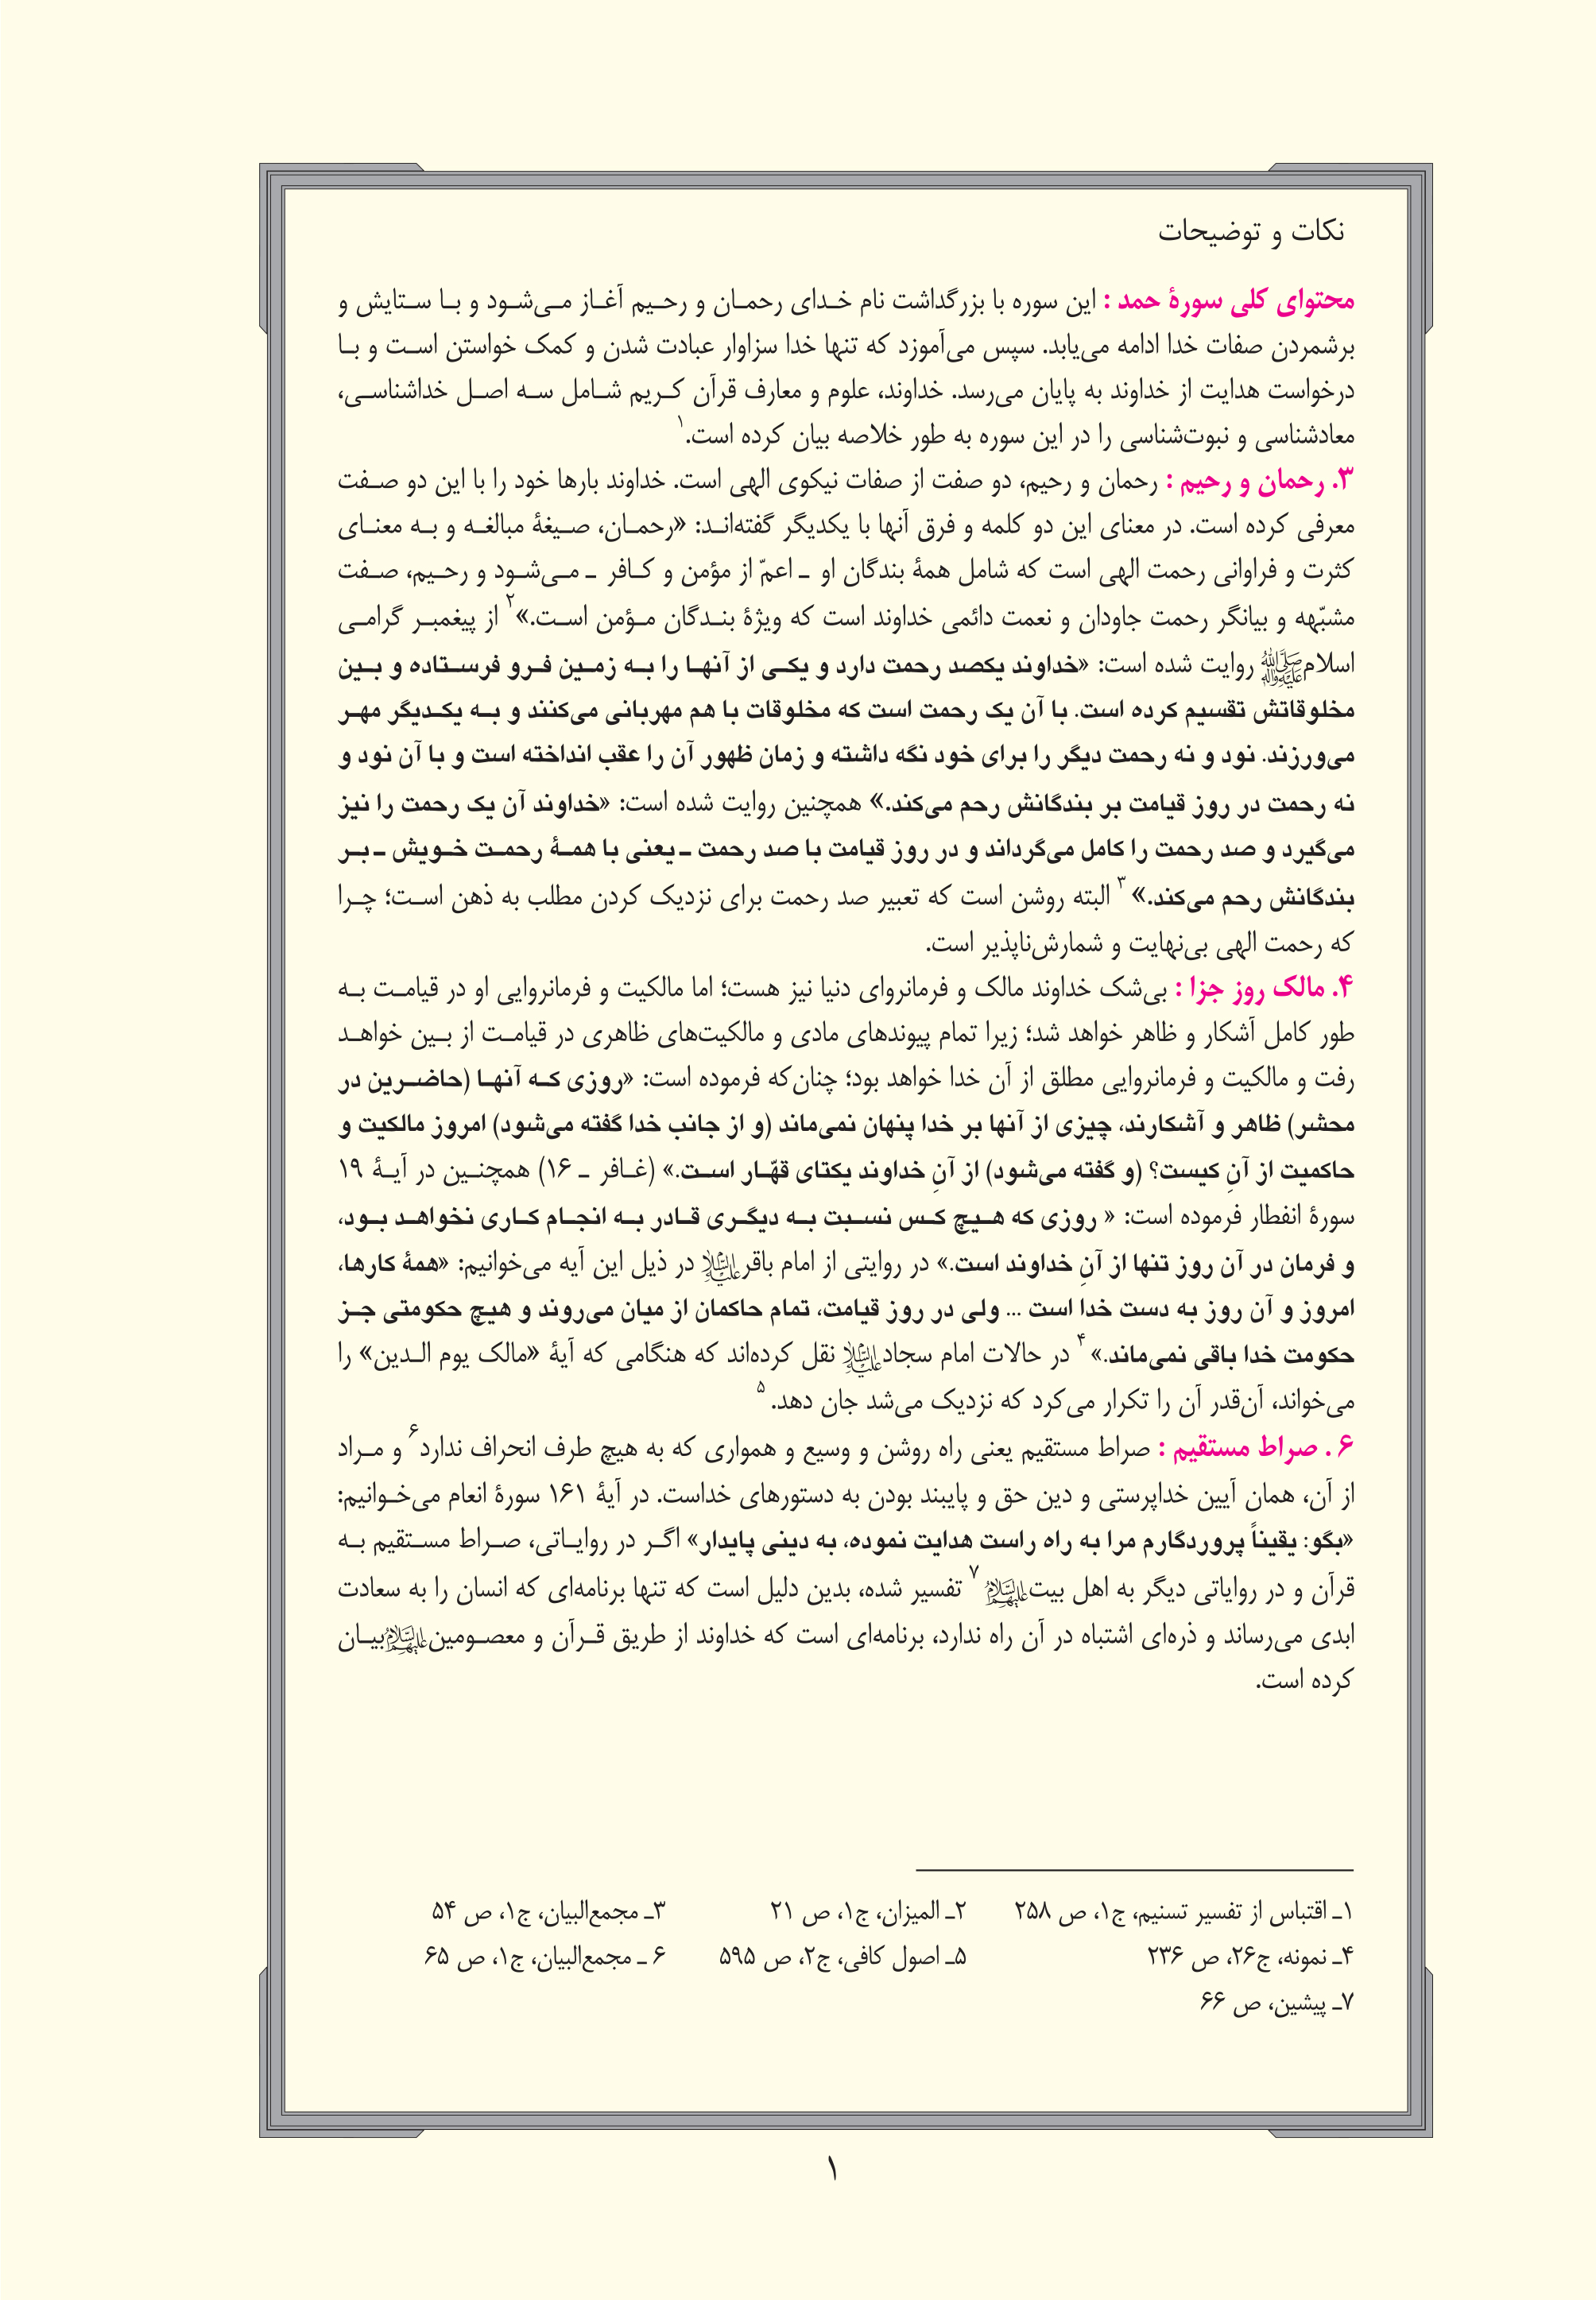 نکات و توضیحات
محتوای کلی سورهٔ حمد : این سوره با بزرگداشت نام خدای رحمان و رحیم آغاز می‌شود و با ستایش و
برشمردن صفات خدا ادامه می‌یابد. سپس می‌آموزد که تنها خدا سزاوار عبادت شدن و کمک خواستن است و با
درخواست هدایت از خداوند به پایان می‌رسد. خداوند، علوم و معارف قرآن کریم شامل سه اصل خداشناسی،
معادشناسی و نبوت‌شناسی را در این سوره به طور خلاصه بیان کرده است.۱
۳. رحمان و رحیم : رحمان و رحیم، دو صفت از صفات نیکوی الهی است. خداوند بارها خود را با این دو صفت
معرفی کرده است. در معنای این دو کلمه و فرق آنها با یکدیگر گفته‌اند: «رحمان، صیغهٔ مبالغه و به معنای
کثرت و فراوانی رحمت الهی است که شامل همهٔ بندگان او ـ اعمّ از مؤمن و کافر ـ می‌شود و رحیم، صفت
مشبّهه و بیانگر رحمت جاودان و نعمت دائمی خداوند است که ویژهٔ بندگان مؤمن است.»۲ از پیغمبر گرامی
اسلام ﷺ روایت شده است: «خداوند یکصد رحمت دارد و یکی از آنها را به زمین فرو فرستاده و بین
مخلوقاتش تقسیم کرده است. با آن یک رحمت است که مخلوقات با هم مهربانی می‌کنند و به یکدیگر مهر
می‌ورزند. نود و نه رحمت دیگر را برای خود نگه داشته و زمان ظهور آن را عقب انداخته است و با آن نود و
نه رحمت در روز قیامت بر بندگانش رحم می‌کند.» همچنین روایت شده است: «خداوند آن یک رحمت را نیز
می‌گیرد و صد رحمت را کامل می‌گرداند و در روز قیامت با صد رحمت ـ یعنی با همهٔ رحمت خویش ـ بر
بندگانش رحم می‌کند.»۳ البته روشن است که تعبیر صد رحمت برای نزدیک کردن مطلب به ذهن است؛ چرا
که رحمت الهی بی‌نهایت و شمارش‌ناپذیر است.
۴. مالک روز جزا : بی‌شک خداوند مالک و فرمانروای دنیا نیز هست؛ اما مالکیت و فرمانروایی او در قیامت به
طور کامل آشکار و ظاهر خواهد شد؛ زیرا تمام پیوندهای مادی و مالکیت‌های ظاهری در قیامت از بین خواهد
رفت و مالکیت و فرمانروایی مطلق از آن خدا خواهد بود؛ چنان‌که فرموده است: «روزی که آنها (حاضرین در
محشر) ظاهر و آشکارند، چیزی از آنها بر خدا پنهان نمی‌ماند (و از جانب خدا گفته می‌شود) امروز مالکیت و
حاکمیت از آنِ کیست؟ (و گفته می‌شود) از آنِ خداوند یکتای قهّار است.» (غافر ـ ۱۶) همچنین در آیهٔ ۱۹
سورهٔ انفطار فرموده است: « روزی که هیچ کس نسبت به دیگری قادر به انجام کاری نخواهد بود،
و فرمان در آن روز تنها از آنِ خداوند است.» در روایتی از امام باقر علیه السلام در ذیل این آیه می‌خوانیم: «همهٔ کارها،
امروز و آن روز به دست خدا است ... ولی در روز قیامت، تمام حاکمان از میان می‌روند و هیچ حکومتی جز
حکومت خدا باقی نمی‌ماند.»۴ در حالات امام سجاد علیه السلام نقل کرده‌اند که هنگامی که آیهٔ «مالک یوم الدین» را
می‌خواند، آن‌قدر آن را تکرار می‌کرد که نزدیک می‌شد جان دهد.۵
۶ . صراط مستقیم : صراط مستقیم یعنی راه روشن و وسیع و همواری که به هیچ طرف انحراف ندارد۶ و مراد
از آن، همان آیین خداپرستی و دین حق و پایبند بودن به دستورهای خداست. در آیهٔ ۱۶۱ سورهٔ انعام می‌خوانیم:
«بگو: یقیناً پروردگارم مرا به راه راست هدایت نموده، به دینی پایدار» اگر در روایاتی، صراط مستقیم به
قرآن و در روایاتی دیگر به اهل بیت علیهم السلام۷ تفسیر شده، بدین دلیل است که تنها برنامه‌ای که انسان را به سعادت
ابدی می‌رساند و ذره‌ای اشتباه در آن راه ندارد، برنامه‌ای است که خداوند از طریق قرآن و معصومین علیهم السلام بیان
کرده است.
۱ـ اقتباس از تفسیر تسنیم، ج۱، ص ۲۵۸ ۲ـ المیزان، ج۱، ص ۲۱ ۳ـ مجمع‌البیان، ج۱، ص ۵۴
۴ـ نمونه، ج۲۶، ص ۲۳۶ ۵ـ اصول کافی، ج۲، ص ۵۹۵ ۶ ـ مجمع‌البیان، ج۱، ص ۶۵
۷ـ پیشین، ص ۶۶
۱